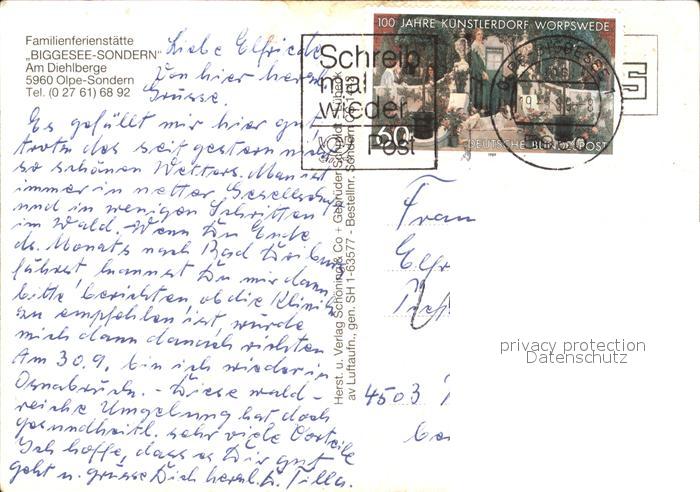 Familienferienstätte
„BIGGESEE-SONDERN"
Am Diehlberge
5960 Olpe-Sondern
Tel. (0 27 61) 68 92
Liebe Elfriede
Von hier herzl.
Grüsse.
Es gefällt mir hier gut,
trotz des seit gestern nicht
so schönen Wetters. Man ist
immer in netter Gesellschaft
und in wenigen Schritten
im Wald. Wenn Du Ende
ds. Monats nach Bad Driburg
fährst kannst Du mir dann
bitte berichten, ob die Klinik
zu empfehlen ist, würde
mich dann danach richten
Am 30.9. bin ich wieder in
Osnabrück. - Diese wald-
reiche Umgebung hat doch
gesundheitl. sehr viele Vorteile
Ich hoffe, dass es Dir gut
geht u. grüsse Dich herzl. D. Tilla.
Herst. u. Verlag Schöning & Co + Gebrüder Schmidt, Lübeck
av Luftaufn., gen. SH 1-63577 - Bestellnr. Sondern
100 JAHRE KÜNSTLERDORF WORPSWEDE
60
DEUTSCHE BUNDESPOST
1989
Schreib
mal
wieder
Post
Frau
Elfr
4503
privacy protection
Datenschutz